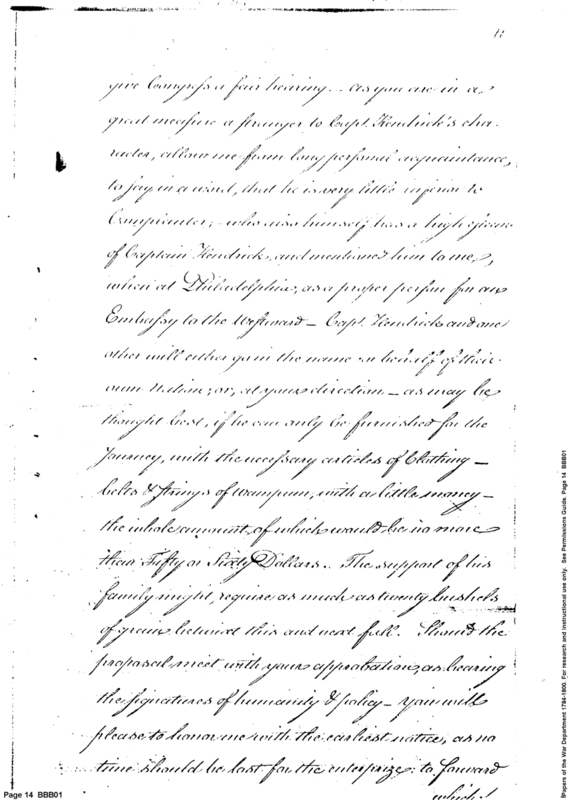 give Congress a fair hearing — as you are in a
great measure a stranger to Capt. Kendrick's cha-
racter, allow me from long personal acquaintance,
to say in a word, that he is very little inferior to
Cornplanter; who also himself has a high esteem
of Captain Kendrick, and mentioned him to me,
when at Philadelphia, as a proper person for an
Embassy to the Westward — Capt. Kendrick and one
other will either go in the name & behalf of their
own Nation; or, at your direction — as may be
thought best, if he can only be furnished for the
Journey, with the necessary articles of Clothing —
belts & strings of wampum, with a little money —
the whole amount of which would be no more
than Fifty or Sixty Dollars. The support of his
family might require as much as twenty bushels
of grain between this and next fall. Should the
proposal meet with your approbation, as bearing
the signatures of humanity & policy — you will
please to honor me with the earliest notice, as no
time should be lost for the enterprize: to forward
which I
Page 14 BBB01
Papers of the War Department 1784-1800. For research and instructional use only. See Permissions Guide. Page 14 BBB01